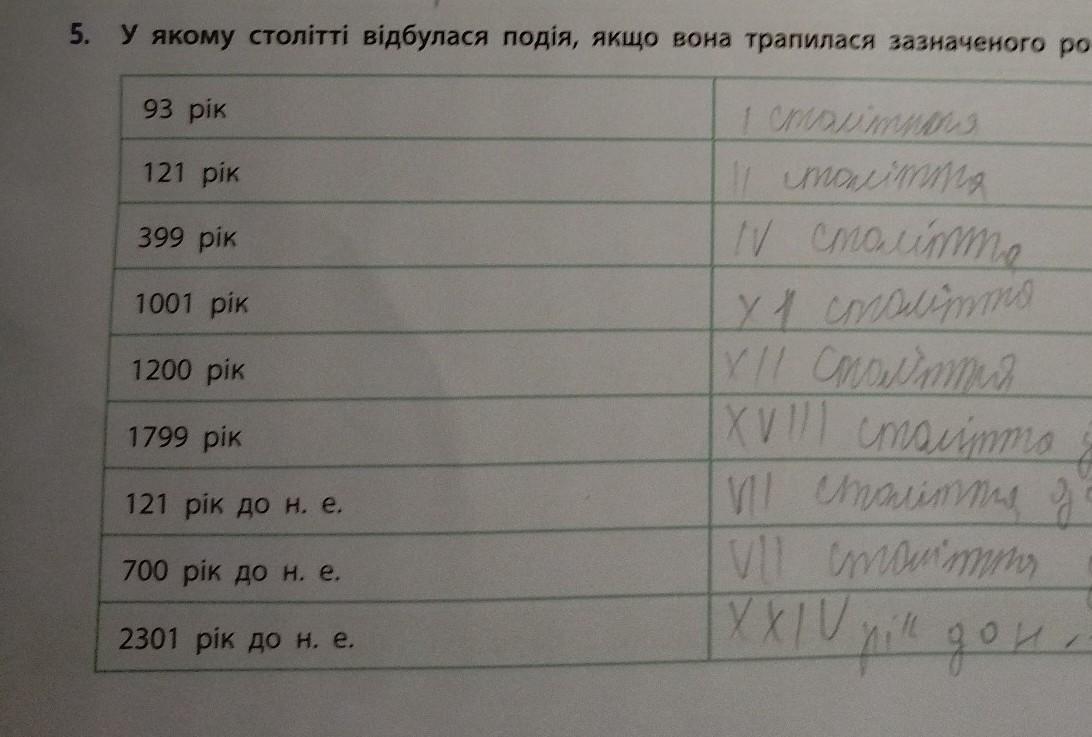 5. У якому столітті відбулася подія, якщо вона трапилася зазначеного ро
93 рік I століття
121 рік II століття
399 рік IV століття
1001 рік XI століття
1200 рік XII століття
1799 рік XVIII століття
121 рік до н. е. VII століття д
700 рік до н. е. VII століття
2301 рік до н. е. XXIV рік до н.